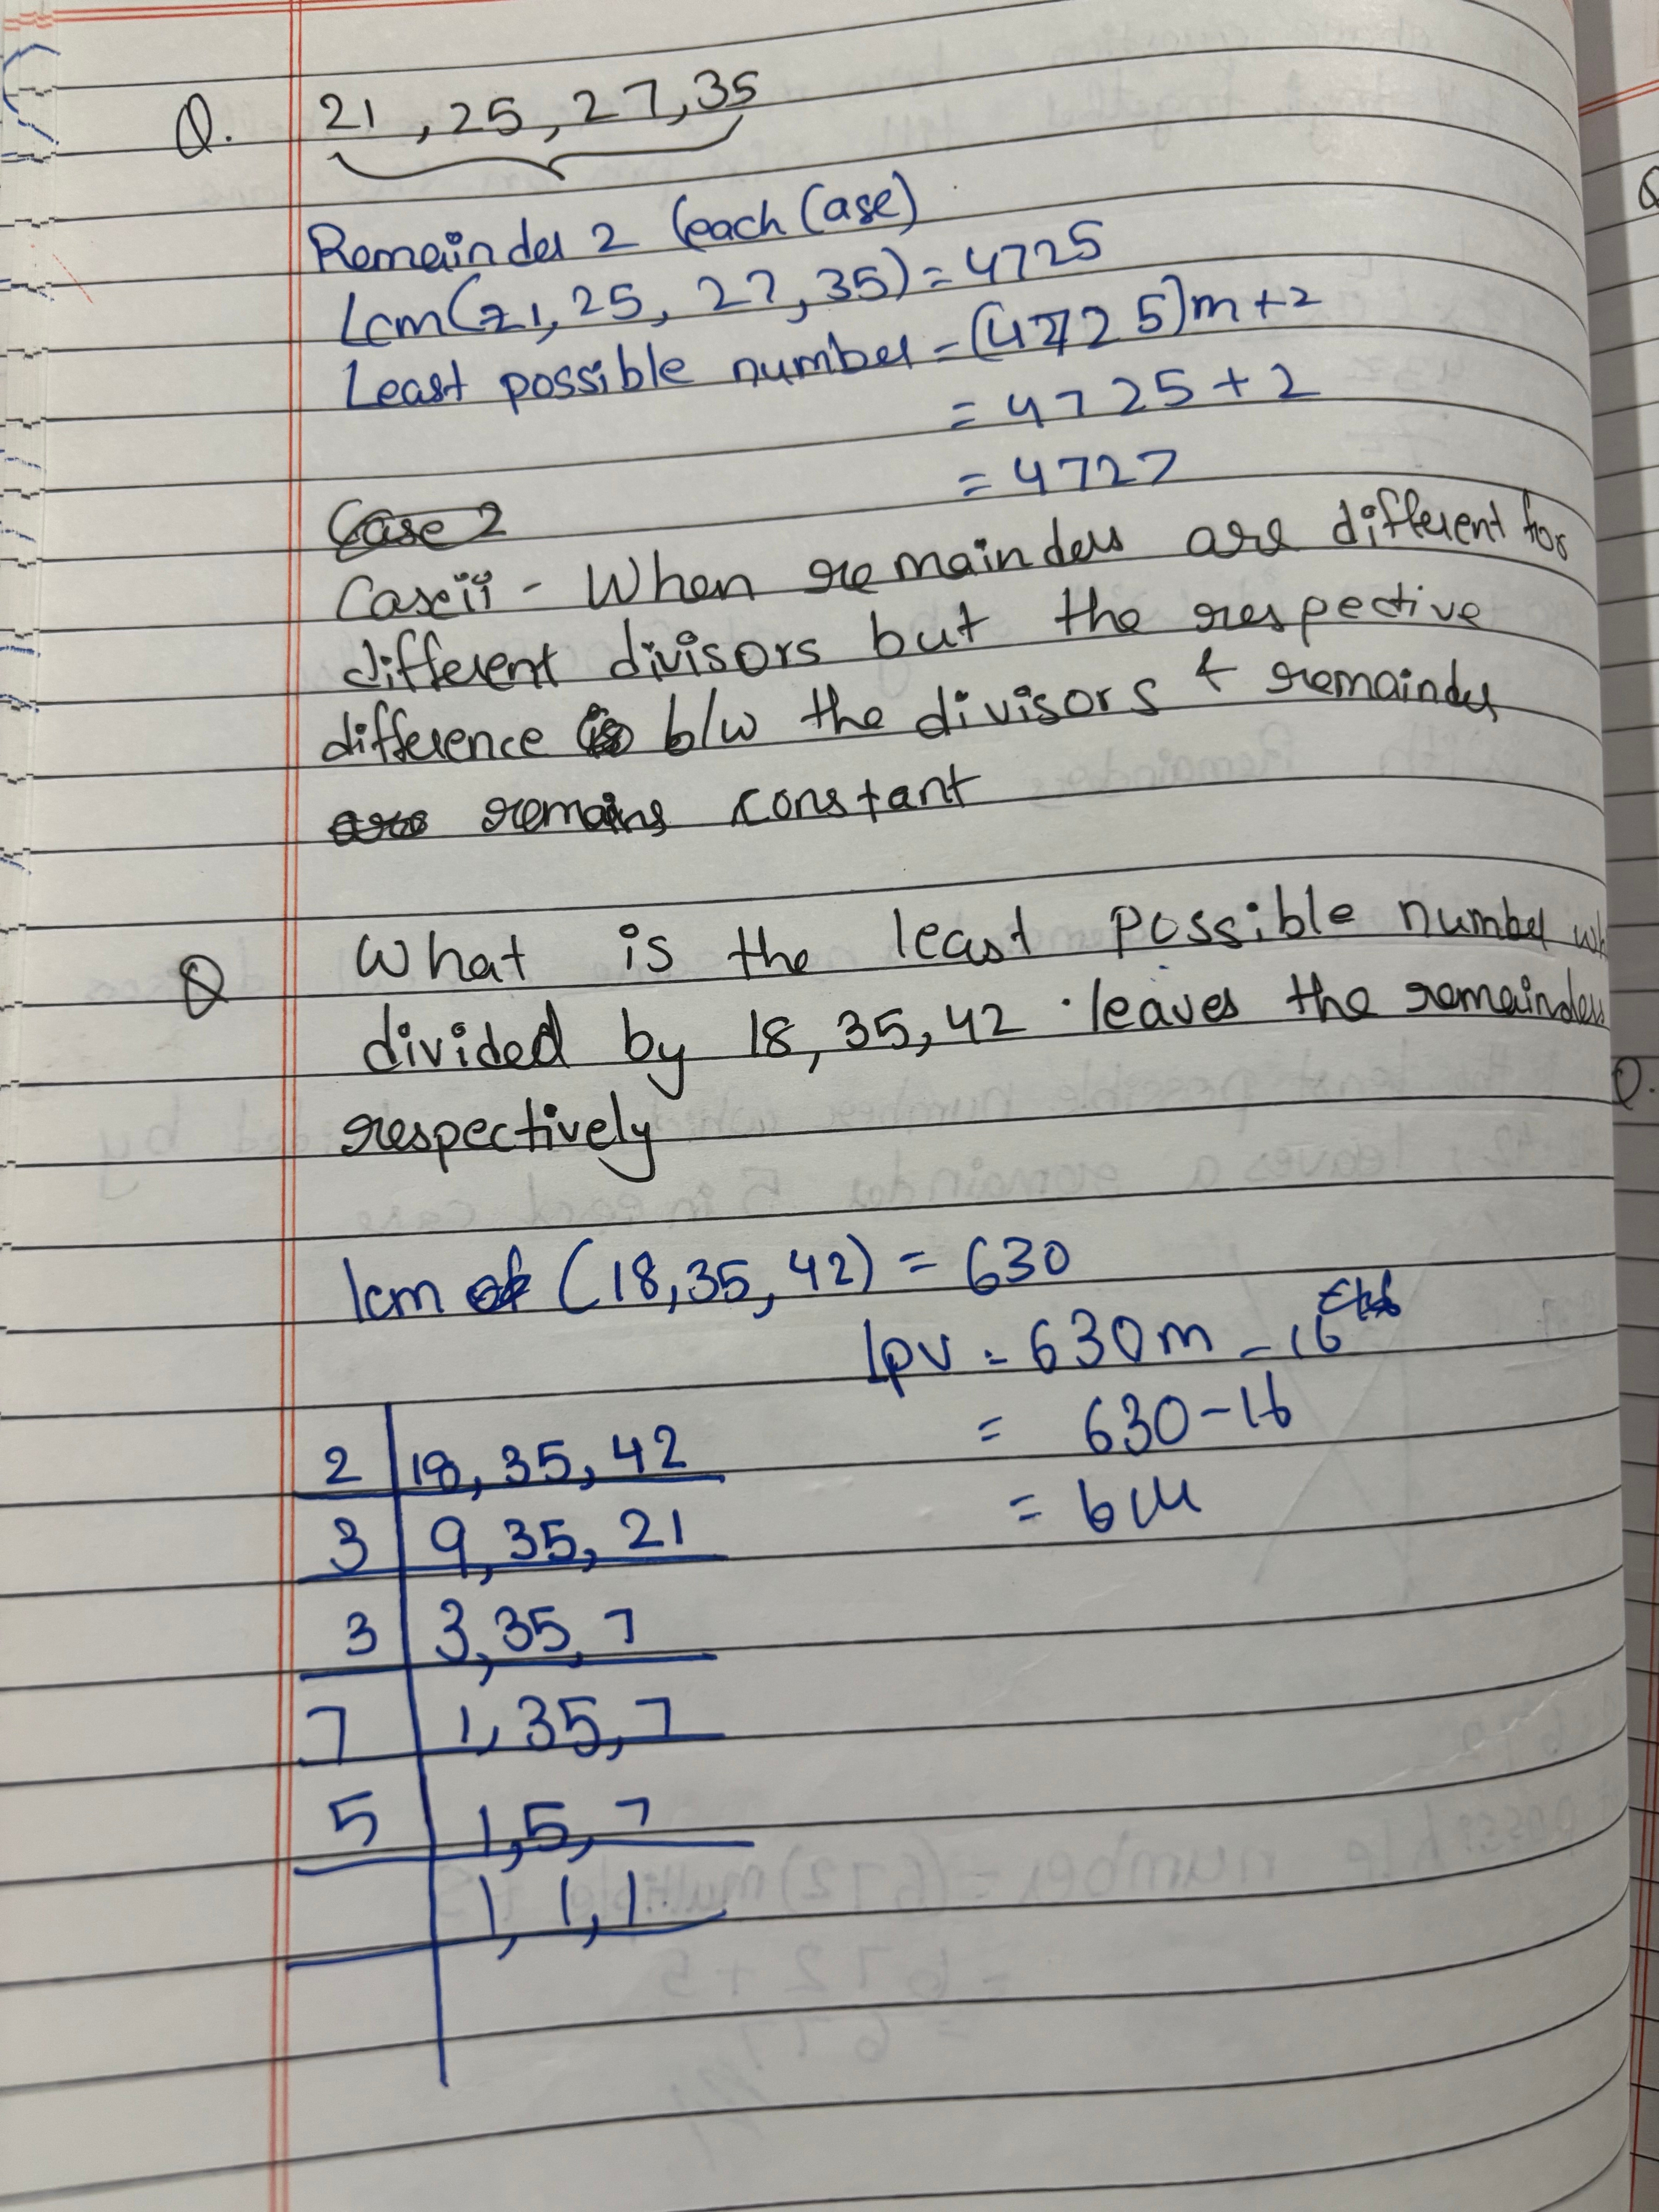 Q. 21, 25, 27, 35
Remainder 2 (each Case)
Lcm(21, 25, 27, 35) = 4725
Least possible number = (4725)m + 2
= 4725 + 2
= 4727
Case 2
Case ii - When remainders are different for
different divisors but the respective
difference is b/w the divisors & remainder
are remains constant
Q What is the least possible number wh
divided by 18, 35, 42 . leaves the remainders
respectively
lcm of (18, 35, 42) = 630
lpv = 630m - 16
= 630 - 16
= 614
2 18, 35, 42
3 9, 35, 21
3 3, 35, 7
7 1, 35, 7
5 1, 5, 7
1, 1, 1